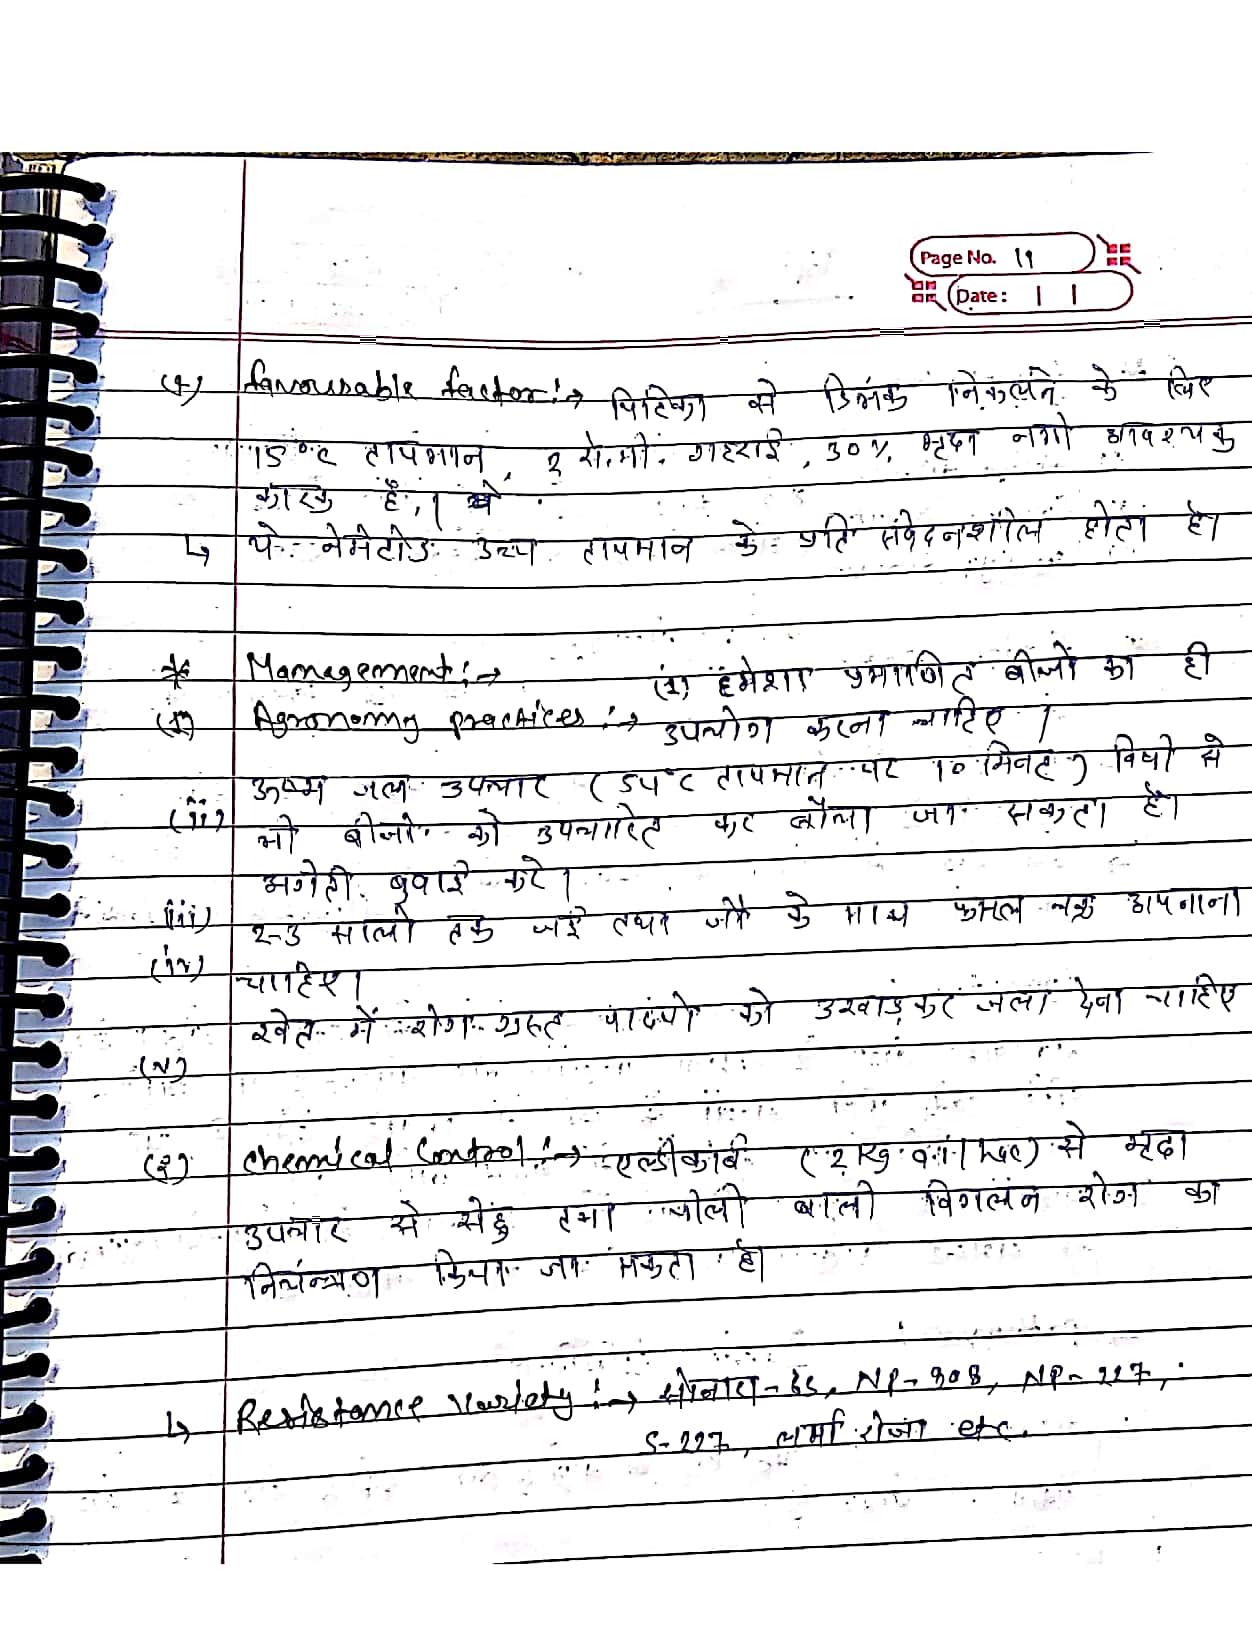 Page No. 19
Date: | |
(1) favourable factor :→ पिटिका से डिंभक निकलने के लिए
15°C तापमान, 2 से.मी. गहराई, 30% मृदा नमी आवश्यक
कारक है।
↳ ये नेमेटोड उच्च तापमान के प्रति संवेदनशील होता है।
* Management :→ (1) हमेशा प्रमाणित बीजों का ही
(1) Agronomy practices :→ उपयोग करना चाहिए।
(ii) ऊष्म जल उपचार (54°C तापमान पर 10 मिनट) विधी से
भी बीजो को उपचारित कर बोया जा सकता है।
(iii) अगेती बुवाई करे।
(iv) 2-3 सालो तक जई तथा जौ के साथ फसल चक्र अपनाना
चाहिए।
(v) खेत में रोग ग्रस्त पादपो को उखाड़कर जला देना चाहिए
(2) Chemical Control :→ एल्डीकार्ब (2 Kg a.i / hac) से मृदा
उपचार से सेहु तथा पीली बाली विगलन रोग का
नियंन्त्रण किया जा सकता है।
↳ Resistance variety :→ NP-908, NP-227,
S-227, लर्मा रोजा etc.